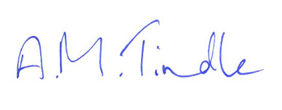 A.M. Tindle